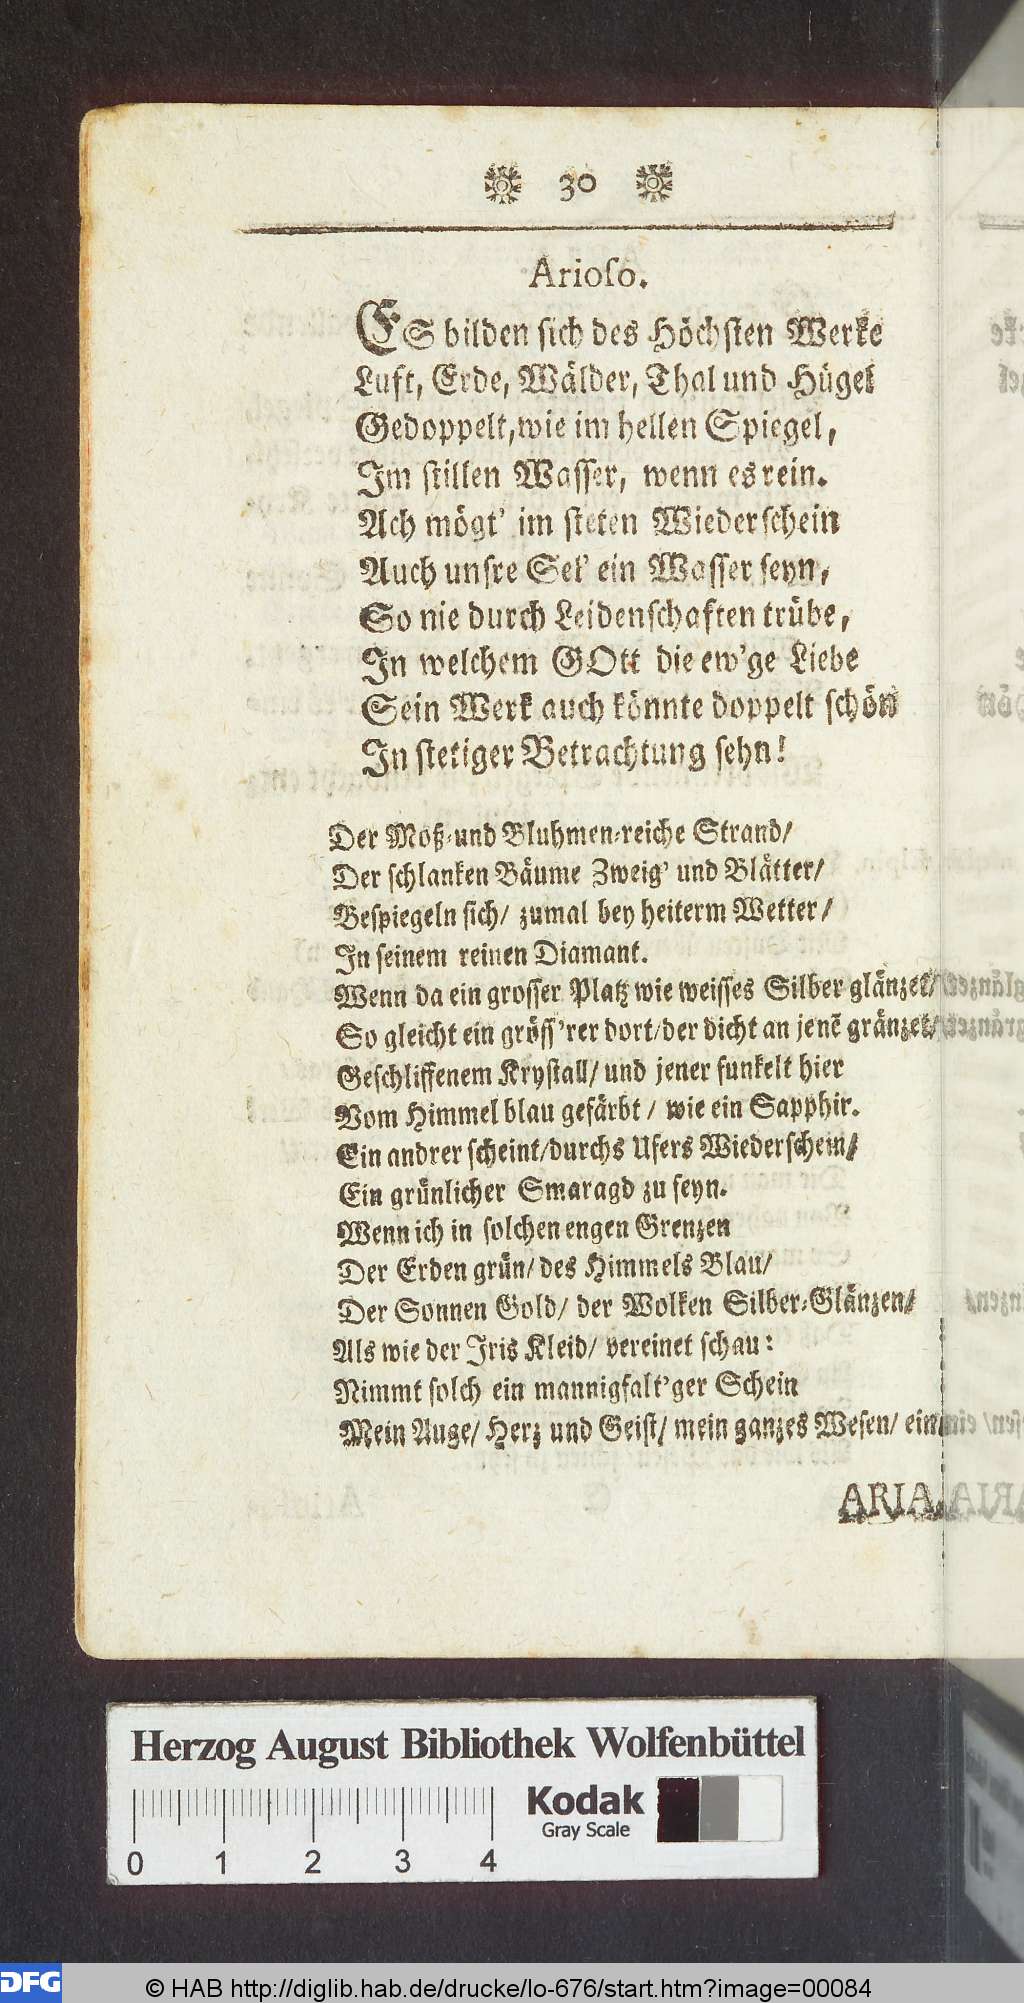 30
Arioso.
ES bilden sich des Höchsten Werke
Luft, Erde, Wälder, Thal und Hügel
Gedoppelt, wie im hellen Spiegel,
Im stillen Wasser, wenn es rein.
Ach mögt' im steten Wiederschein
Auch unsre Sel' ein Wasser seyn,
So nie durch Leidenschaften trübe,
In welchem GOtt die ew'ge Liebe
Sein Werk auch könnte doppelt schön
In stetiger Betrachtung sehn!
Der Moß-und Bluhmen-reiche Strand/
Der schlanken Bäume Zweig' und Blätter/
Bespiegeln sich/ zumal bey heiterm Wetter/
In seinem reinen Diamant.
Wenn da ein grosser Platz wie weisses Silber glänzet/
So gleicht ein gröss'rer dort/der dicht an jenē gränzet/
Geschliffenem Krystall/ und jener funkelt hier
Vom Himmel blau gefärbt / wie ein Sapphir.
Ein andrer scheint/durchs Ufers Wiederschein/
Ein grünlicher Smaragd zu seyn.
Wenn ich in solchen engen Grenzen
Der Erden grün/ des Himmels Blau/
Der Sonnen Gold/ der Wolken Silber-Glänzen/
Als wie der Iris Kleid/ vereinet schau:
Nimmt solch ein mannigfalt'ger Schein
Mein Auge/ Herz und Geist/ mein ganzes Wesen/ ein.
ARIA.
Herzog August Bibliothek Wolfenbüttel
Kodak
Gray Scale
0 1 2 3 4
DFG
© HAB http://diglib.hab.de/drucke/lo-676/start.htm?image=00084